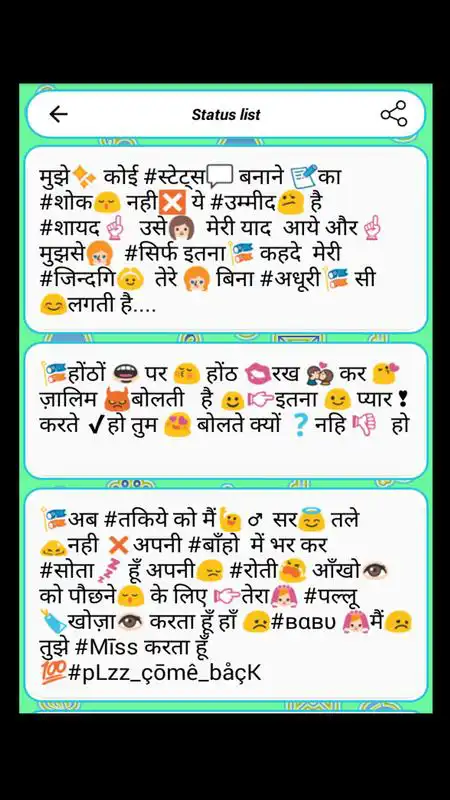 Status list
मुझे✨ कोई #स्टेट्स💬 बनाने 📝का
#शोक😴 नही❎ ये #उम्मीद😕 है
#शायद☝ उसे👩 मेरी याद आये और☝
मुझसे🙎 #सिर्फ इतना🎏 कहदे मेरी
#जिन्दगि🙆 तेरे 🙎 बिना #अधूरी🎏 सी
😊लगती है....
🎏होंठों 👄 पर 😚 होंठ 💋रख 💏 कर 😘
ज़ालिम 👹बोलती है 🙂👉इतना 😉 प्यार❣
करते ✔हो तुम 😍 बोलते क्यों ❓नहि 👎 हो
🎏अब #तकिये को मैं🙋♂ सर😇 तले
🙇नही ❌अपनी #बाँहो में भर कर
#सोता💤 हूँ अपनी😞 #रोती😭 आँखो👁
को पौछने😌 के लिए 👉तेरा👰 #पल्लू
🔖खोज़ा👁 करता हूँ हाँ 😞#вαвυ 👰मैं😞
तुझे #Mīss करता हूँ
💯#pLzz_çōmê_båçK